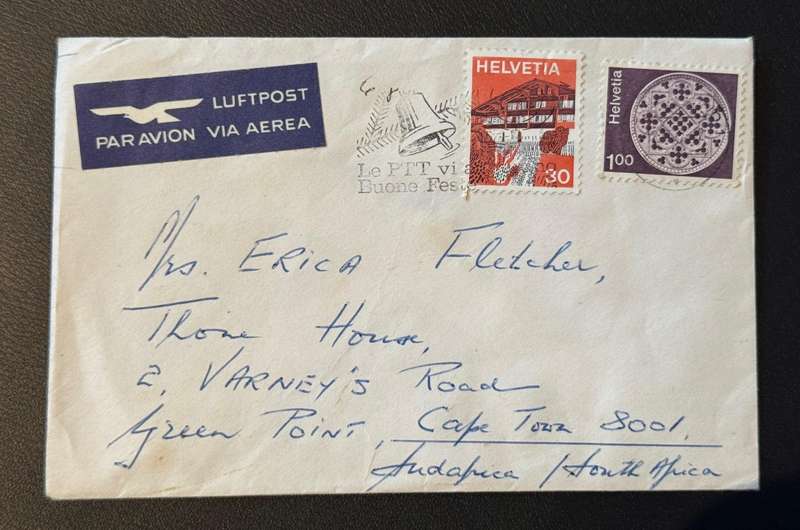 LUFTPOST
PAR AVION VIA AEREA
Le PTT vi
Buone Fes
HELVETIA
30
Helvetia
1.00
Mrs. ERICA Fletcher,
House,
2, VARNEY'S Road
Green POINT, Cape Town 8001.
Südafrica / South Africa